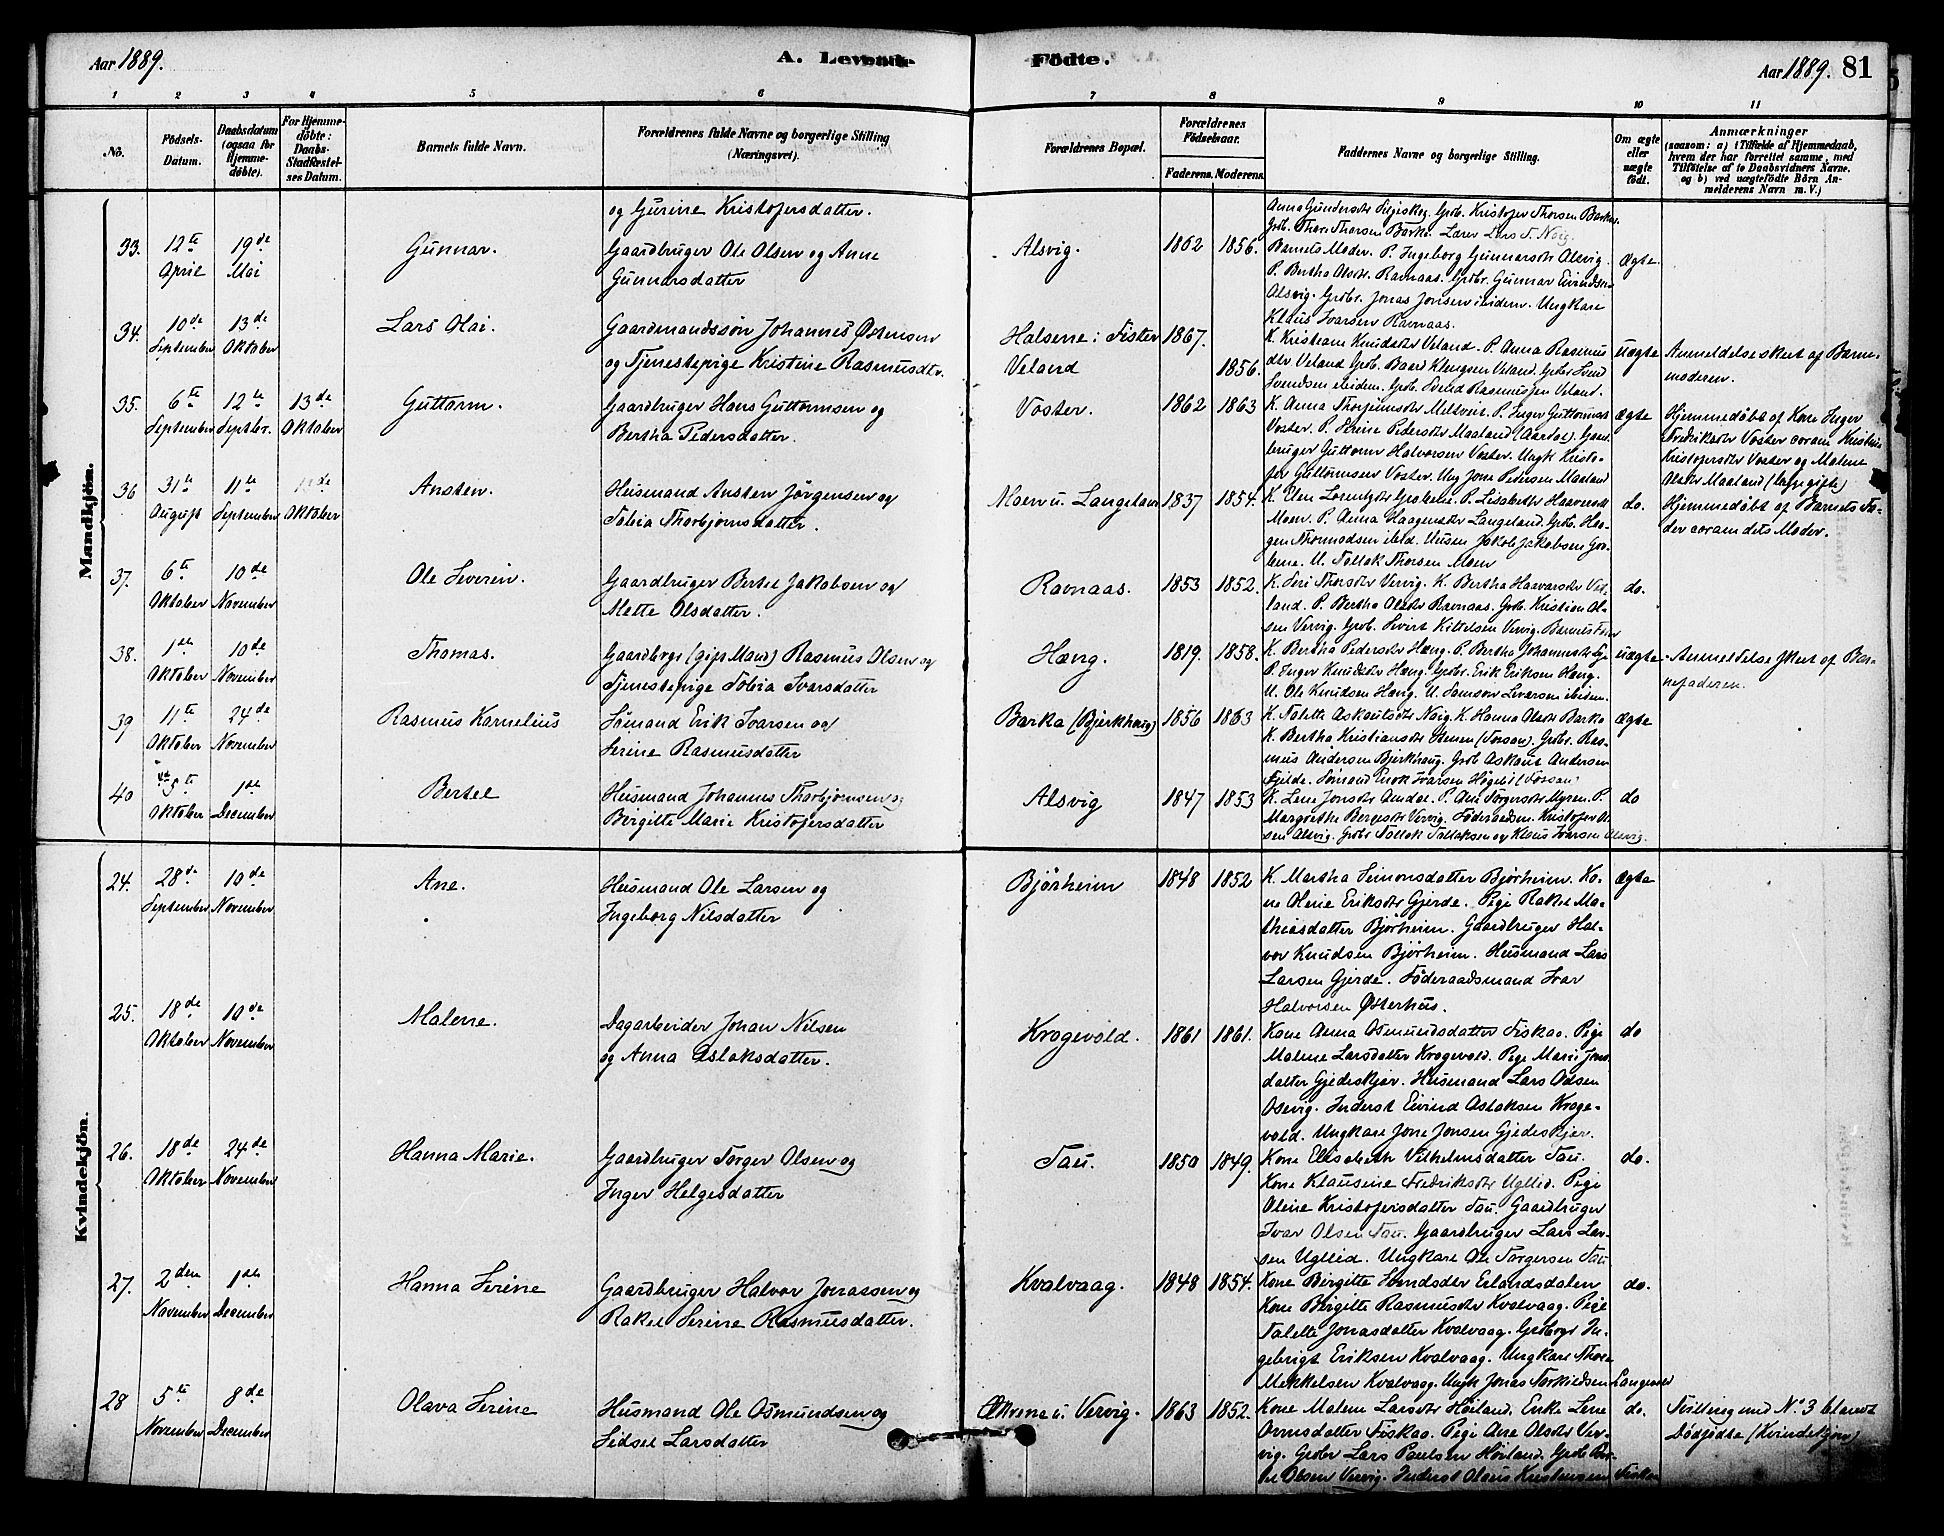 Aar 1889.
A. Levende
Födte.
Aar 1889. 81
1 2 3 4 5 6 7 8 9 10 11
No.
Födsels-
Datum.
Daabsdatum
(ogsaa for
Hjemme-
döbte).
For Hjemme-
döbte:
Daabs-
Stadfæstel-
ses Datum.
Barnets fulde Navn.
Forældrenes fulde Navne og borgerlige Stilling
(Næringsvei).
Forældrenes Bopæl.
Forældrenes
Födselsaar.
Faderens. Moderens.
Faddernes Navne og borgerlige Stilling.
Om ægte
eller
uægte
födt.
Anmærkninger
(saasom: a) i Tilfælde af Hjemmedaab,
hvem der har forrettet samme, med
Tilföielse af to Daabsvidners Navne.
og b) ved uægtefödte Börn An-
melderens Navn m. V.)
Mandkjön.
og Gurine Kristofersdatter.
Grb. Kristofer Thorsen Barka.
Grb. Thore Thorsen Barka. Lærer Lars T. Nag.
33. 12te April
19de Mai
Gunnar.
Gaardbruger Ole Olsen og Anne
Gunnarsdatter
Alsvig.
1862 1856.
Barnets Moder. P. Ingeborg Gunnarsdtr Alsvig.
P. Bertha Olsdtr. Ravnaas. Grdbr. Gunnar Eivindsen
Alsvig. Grdbr. Jonas Jonsen ibidem. Ungkare
Klaus Ivarsen Ravnaas.
ægte.
34. 10de September
13de Oktober
Lars Olai.
Gaardmandssön Johannes Östensen
og Tjenestepige Kristine Rasmusdtr.
Halsene i Fister
Veland
1867.
1856.
K. Kristiane Knudsdtr Veland. P. Anna Rasmus
dtr Veland. Grb. Baard Klengsen Veland. Grdbr Svend
Svendsen ibidem. Grb. Svend Rasmussen Veland.
uægte
Anmeldelse skeet af Barne-
moderen.
35. 6te September
12te Septbr.
13de Oktober
Guttorm.
Gaardbruger Hans Guttormsen og
Bertha Pedersdatter.
Voster.
1862 1863
K. Anna Thorfinnsdtr Meltveit. P. Inger Guttormsdtr
Voster. P. Serine Pedersdtr Maaland (Aardal). Gaard-
bruger Guttorm Halvorsen Voster. Ungk Kristo-
fer Guttormsen Voster. Ung Jone Petersen Maaland
ægte
Hjemmedøbt af Kone Inger
Fredriksdtr Voster coram Kristine
Kristofersdtr Voster og Malene
Olsdtr Maaland (begge gifte)
36 31te August
11te September
13de Oktober
Ansten.
Husmand Ansten Jörgensen og
Tobia Thorbjörnsdatter.
Moen u. Langeland
1837 1854.
K. Elen Lorentzdtr Goalene. P. Lisabeth Haavorsdtr
Moen. P. Anna Haagensdtr Langeland. Grdb. Haa-
gen Thomassen ibid. Jakob Jakobsen Goa-
lene. U. Tollak Thorsen Moen
do.
Hjemmedøbt af Barnets Fa-
der coram dets Moder.
37. 6te Oktober
10de November
Ole Severin.
Gaardbruger Bertel Jakobsen og
Mette Olsdatter.
Ravnaas.
1853 1852.
K. Siri Thorsdtr Vervig. K. Bertha Haavarsdtr Vet-
land. P. Bertha Olsdtr Ravnaas. Grb. Kristian Ol-
sen Vervig. Grb. Sivert Kittelsen Vervig. Barnets Fader
do.
38. 1ste Oktober
10de November
Thomas.
Gaardbrgr (gift Mand) Rasmus Olsen og
Tjenestepige Tobia Ivarsdatter
Hæng.
1819. 1858.
K. Bertha Pedersdtr Hæng. P. Bertha Johannesdtr
P. Inger Knudsdtr Hæng. Grdbr. Erik Eriksen Hæng.
U. Ole Knudsen Hæng. U. Samson Sivarsen ibidem.
uægte
Anmeldelse skeet af Bar-
nefaderen.
39 11te Oktober
24de November
Rasmus Karnelius
Sømand Erik Ivarsen og
Serine Rasmusdatter
Barka (Bjerkhaug)
1856 1863
K. Talette Askautsdtr Nag. K. Hanna Olsdtr Barka
K. Bertha Kristiansdtr Stenen (Forsan). Grdbr. Ras-
mus Andersen Bjerkhaug. Grb Askaut Andersen
Fjelde. Sömand Enok Ivarsen Högeli (Forsan)
ægte
40 5te Oktober
1ste December
Bertel
Husmand Johannes Thorbjörnsen og
Birgitte Marie Kristofersdatter
Alsvig
1847 1853
K. Lene Jonsdtr Amdal. P. Ane Torgersdtr Myren. P.
Margrethe Bergesdtr Vervig. Föderaadsm. Kristofer Ol-
sen Alsvig. Grdbr Tollak Tollaksen og Klaus Ivarsen Alsvig.
do
Kvindekjön.
24. 28de September
10de November
Ane.
Husmand Ole Larsen og
Ingeborg Nilsdatter
Bjørheim
1848 1852
K. Martha Simonsdatter Bjørheim. Ko-
ne Olene Eriksdtr Gjerde. Pige Rakel Ma-
thiasdatter Bjørheim. Gaardbruger Hal-
vor Knudsen Bjørheim. Husmand Lars
Larsen Gjerde. Föderaadsmand Ivar
Halvorsen Østerhus.
ægte
25. 18de Oktober
10de November
Malene.
Dagarbeider Johan Nilsen
og Anna Aslaksdatter.
Krogevold.
1861 1861.
Kone Anna Osmundsdatter Fiskaa. Pige
Malene Larsdatter Krogevold. Pige Marie Jons
datter Gjedeskjer. Husmand Lars Odsen
Osevig. Inderst Eivind Aslaksen Kroge-
vold. Ungkare Jone Jonsen Gjedeskjer.
do
26. 18de Oktober
24de November
Hanna Marie.
Gaardbruger Torger Olsen og
Inger Helgesdatter
Tau.
1850 1849.
Kone Elisabeth Vilhelmsdatter Tau.
Kone Klausine Fredriksdtr Uglid. Pige
Olene Kristofersdatter Tau. Gaardbruger
Ivar Olsen Tau. Gaardbruger Lars Lar-
sen Uglid. Ungkare Ole Torgersen Tau
do.
27. 2den November
1ste December
Hanna Serine
Gaardbruger Halvor Jonassen og
Rakel Serine Rasmusdatter.
Kvalvaag.
1848 1854.
Kone Birgitte Svendsdtr Erlandsdalen
Kone Birgitte Rasmusdtr Kvalvaag. Pige
Talette Jonasdatter Kvalvaag. Grdbrgr In-
gebrigt Eriksen Kvalvaag. Ungkare Thore
Mikkelsen Kvalvaag. Ungk Jonas Torkildsen Langeland
do.
28 5te November
8de December
Olava Serine
Husmand Ole Osmundsen og
Sidsel Larsdatter
u. Vervig.
1863 1852.
Kone Malene Larsdtr Høiland. Enke Lene
Ormsdatter Fiskaa. Pige Ane Olsdtr Ver-
vig. Grdbr Lars Paulsen Høiland. Grdb
Olsen Vervig. Inderst Olaus Kristensen Fiskaa
do.
Tvilling med No 3 blandt
Dödfödte (Kvindekjøn)